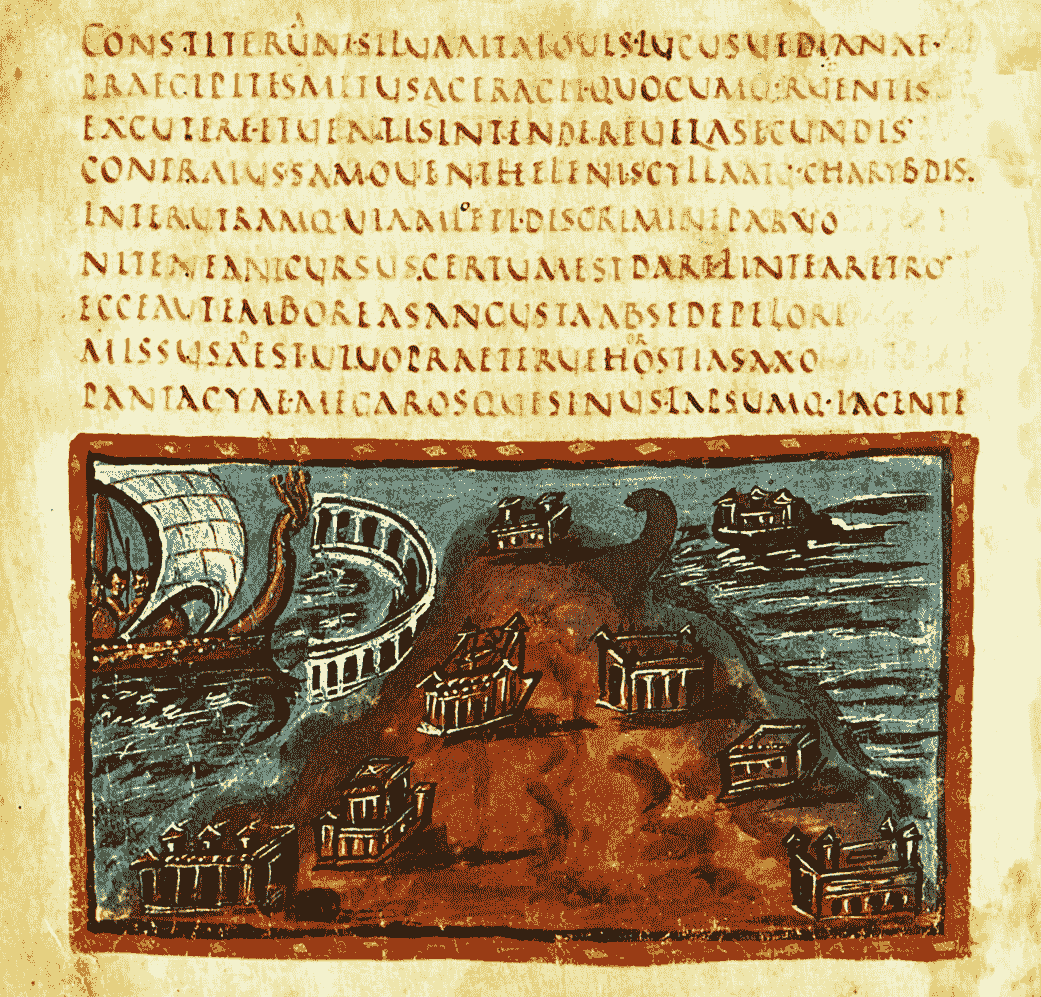 CONSTITERUNT·SILUAALTAIOUIS·LUCUSUEDIANAE·
PRAECIPITESMETUSACERAGIT·QUOCUMQ·RUENTIS
EXCUTERE·ETUENTISINTENDEREUELASECUNDIS
CONTRAIUSSAMOUENTHELENI·SCYLLAATQ·CHARYBDIS.
INTERUTRAMQ·UIAMLETI·DISCRIMINEPARUO
NITENEANTCURSUS·CERTUMESTDARELINTEARETRO
ECCEAUTEMBOREASANGUSTAABSEDEPELORI
MISSUSADEST·UIUOPRAETERUEHOROSTIASAXO
PANTAGYAE·MEGAROSQUESINUS·TAPSUMQ·IACENTE